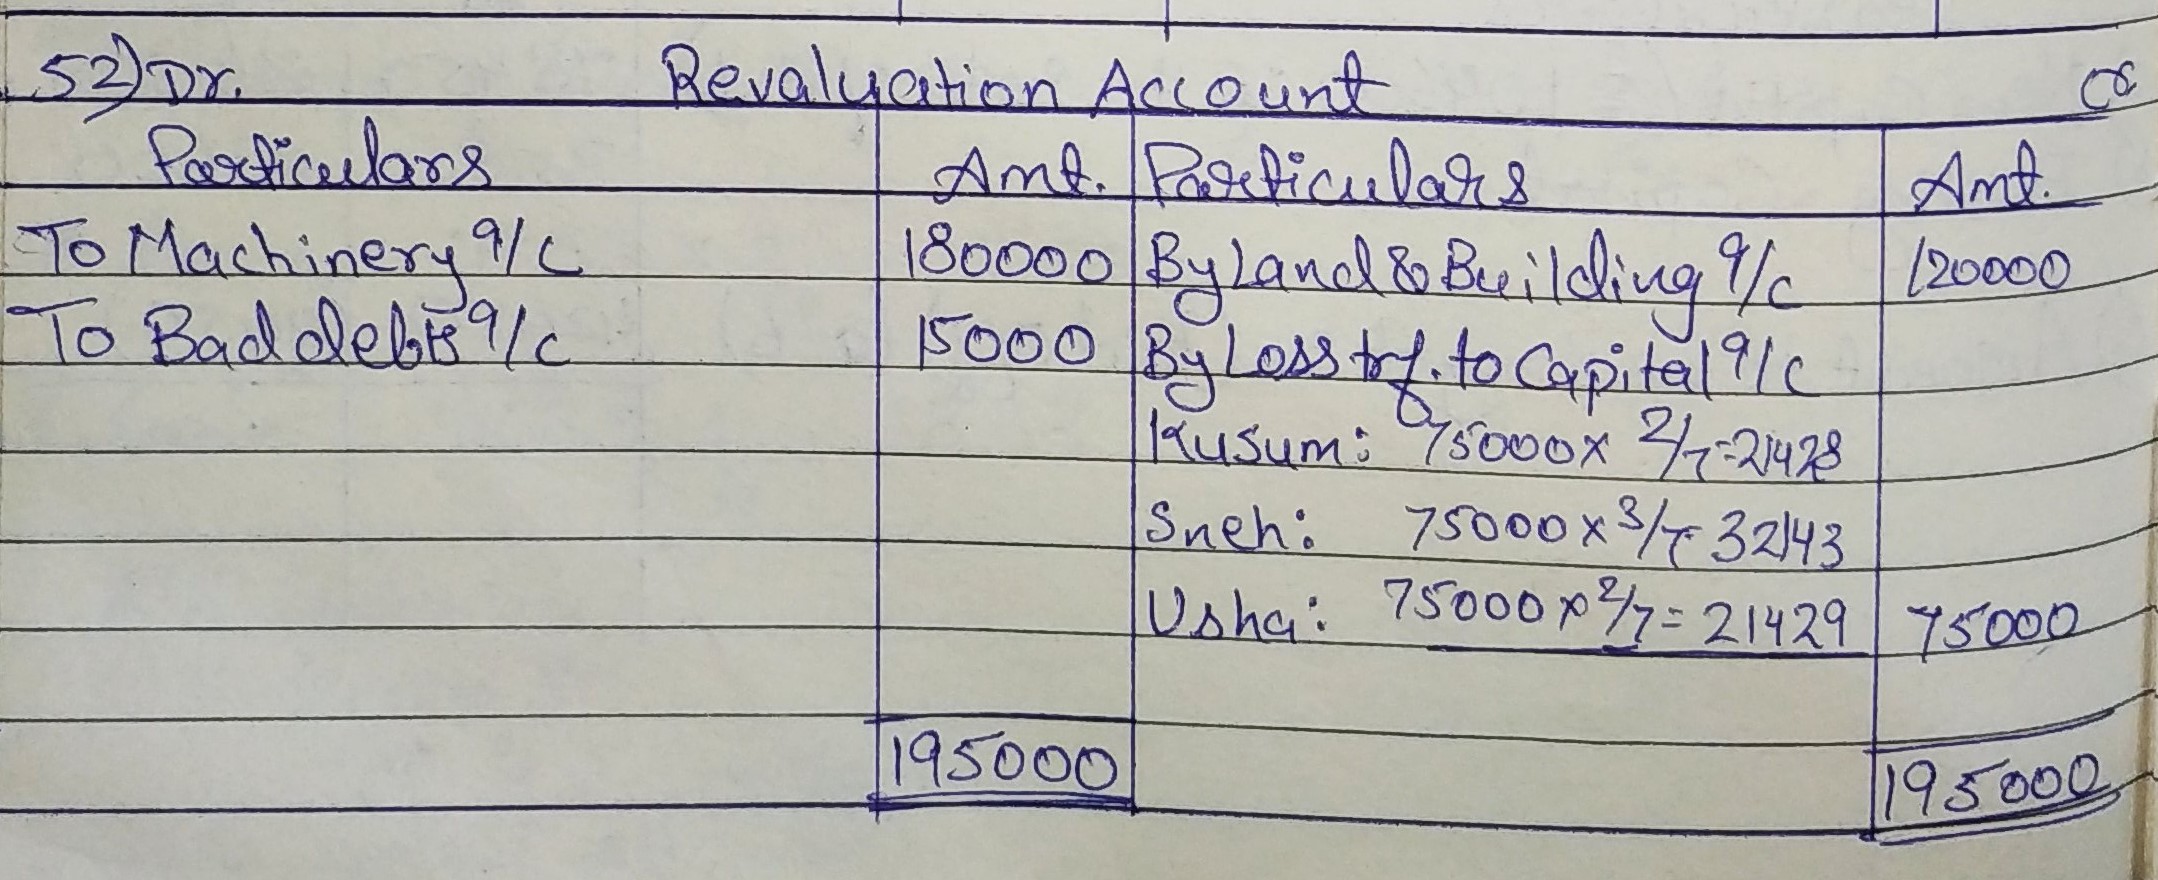 52) Dr. Revaluation Account Cr
Particulars Amt. Particulars Amt.
To Machinery a/c 180000 By Land & Building a/c 120000
To Bad debts a/c 15000 By Loss trf. to Capital a/c
Kusum: 75000 x 2/7 = 21428
Sneh: 75000 x 3/7 = 32143
Usha: 75000 x 2/7 = 21429 75000
195000 195000